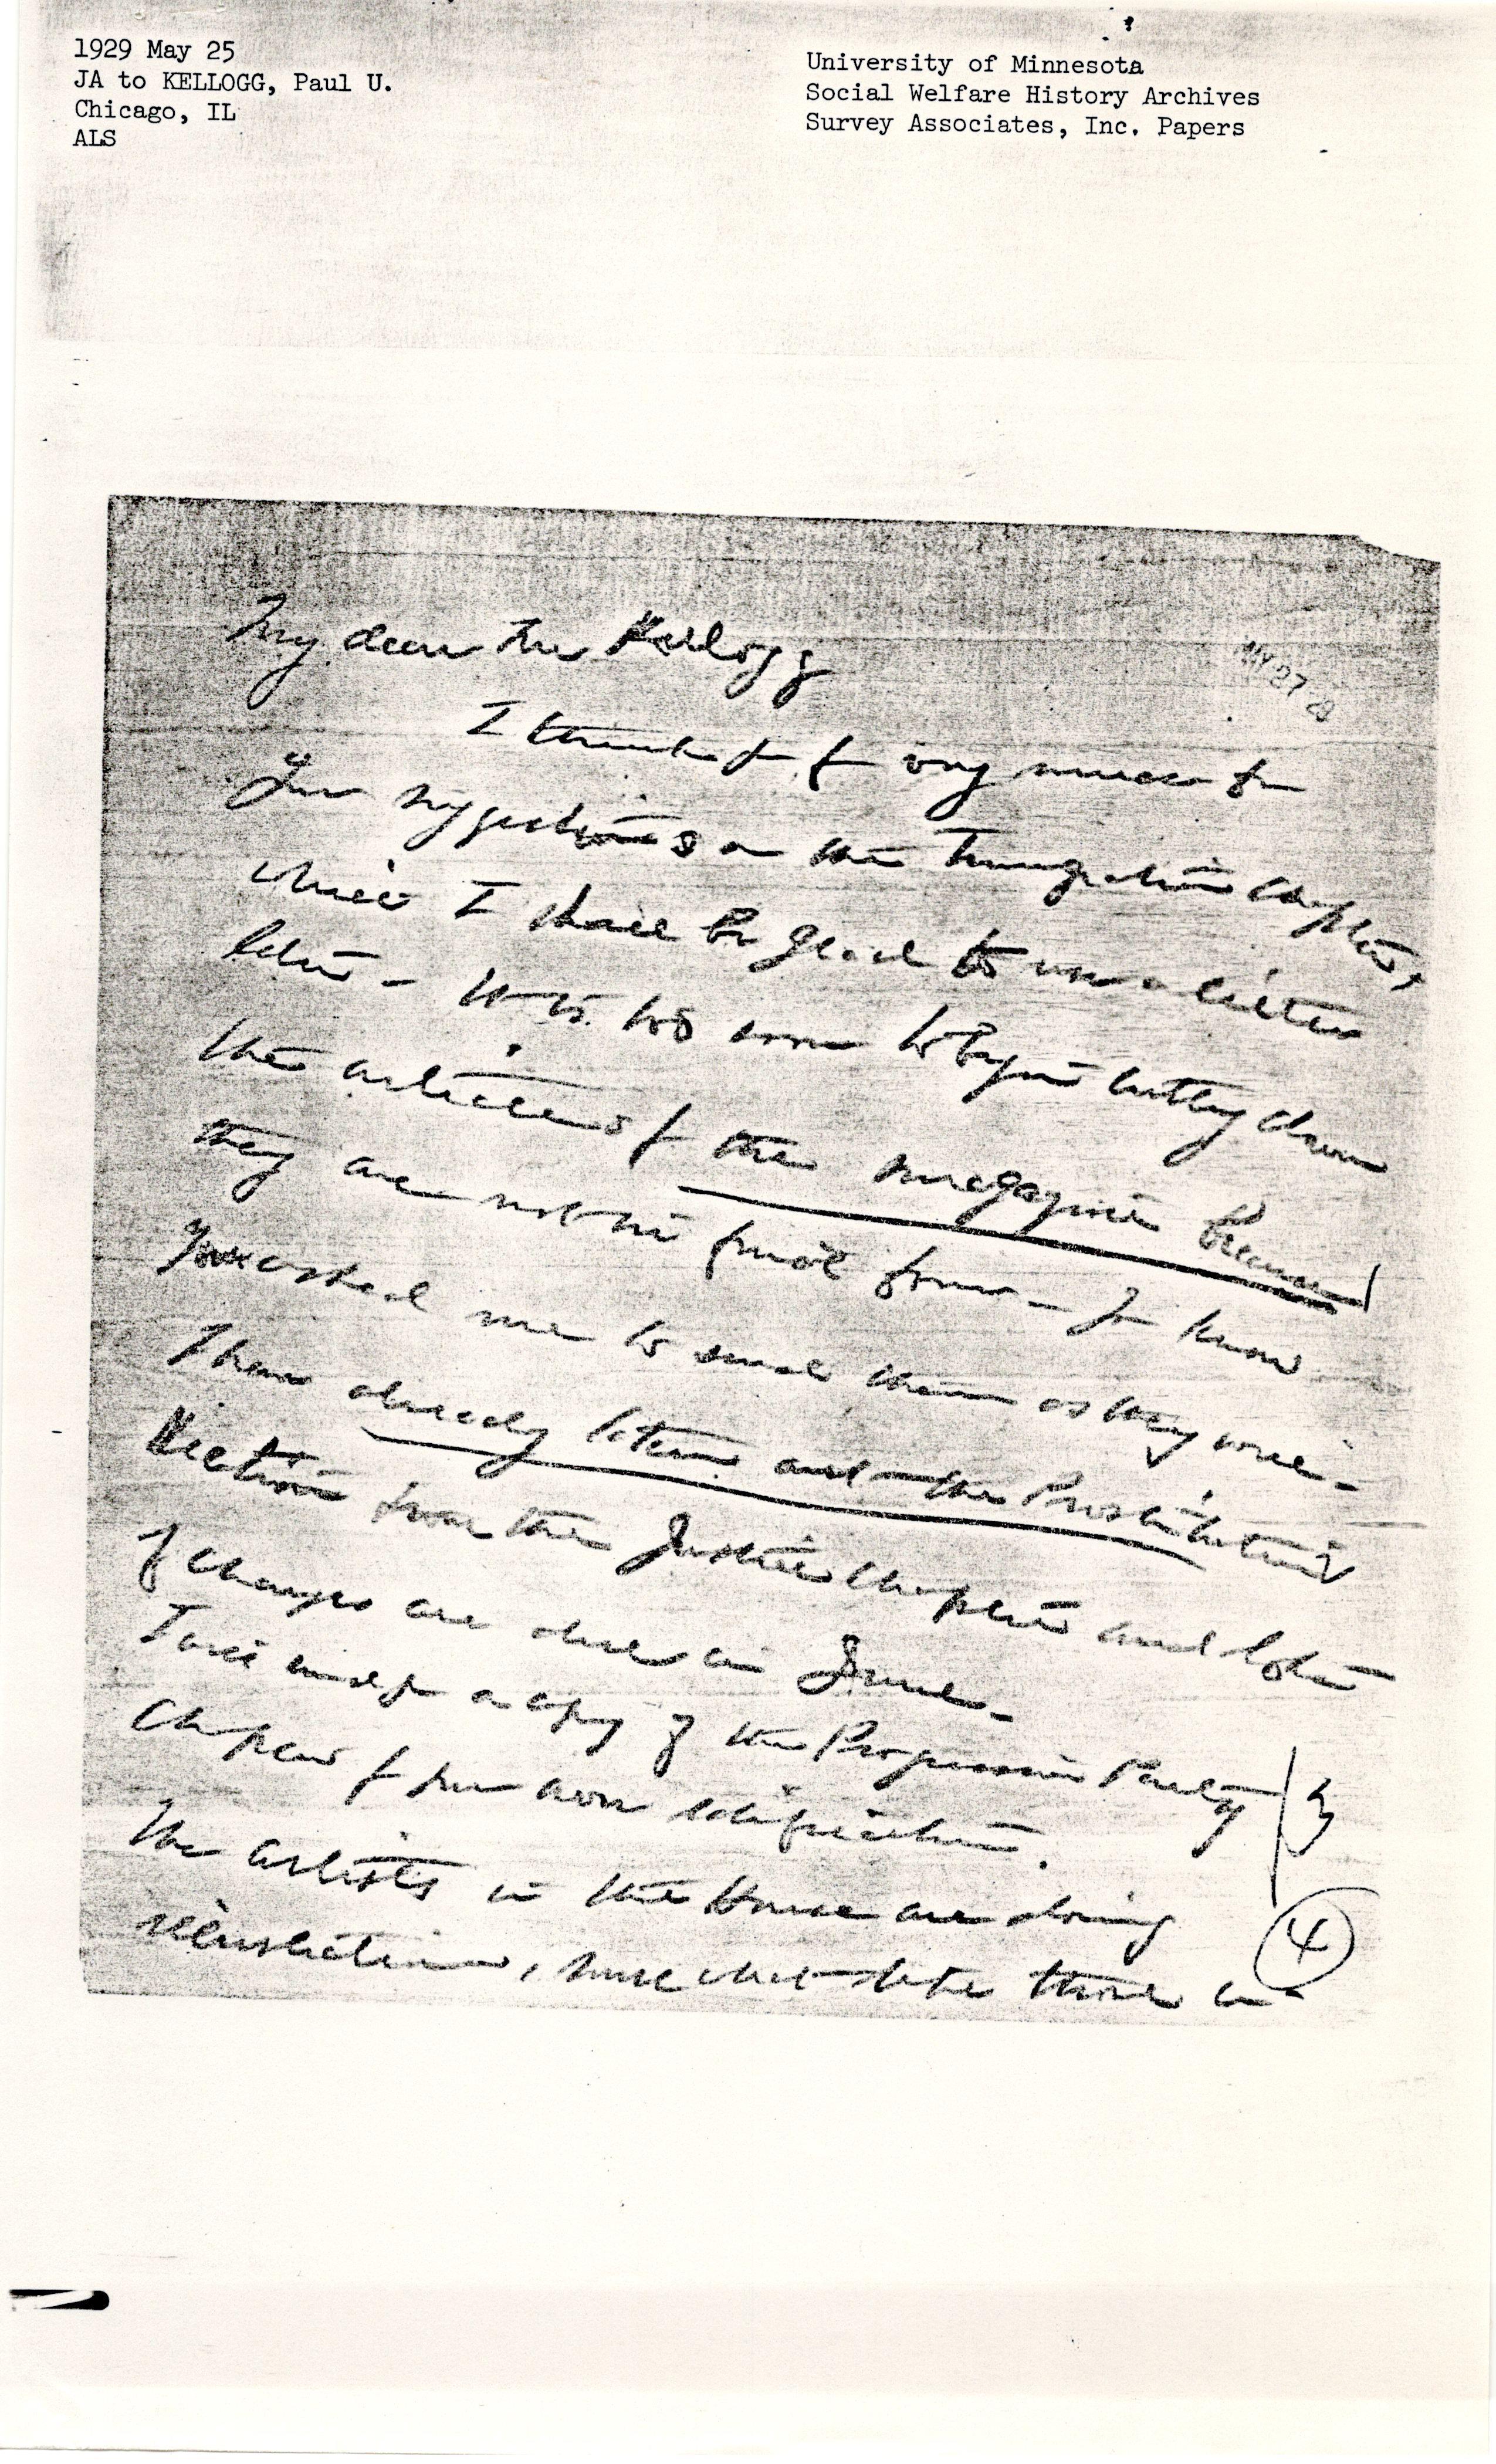 1929 May 25
JA to KELLOGG, Paul U.
Chicago, IL
ALS
University of Minnesota
Social Welfare History Archives
Survey Associates, Inc. Papers
MY 27 29
My dear Mr Kellogg
I thank you very much for
your suggestions on the Immigration chapter,
which I shall be glad to use a little
later – It is too soon to begin cutting down
the articles for the magazine because
they are not in final form – you know
you asked me to send them as they were –
I have already taken out the Prostitution
section from the Justice Chapter and lots
of changes are due in June –
I will send you a copy of the Progressive Party
chapter for your own edification.
The artists in the House are doing
illustrations, somewhat like those in
3
4